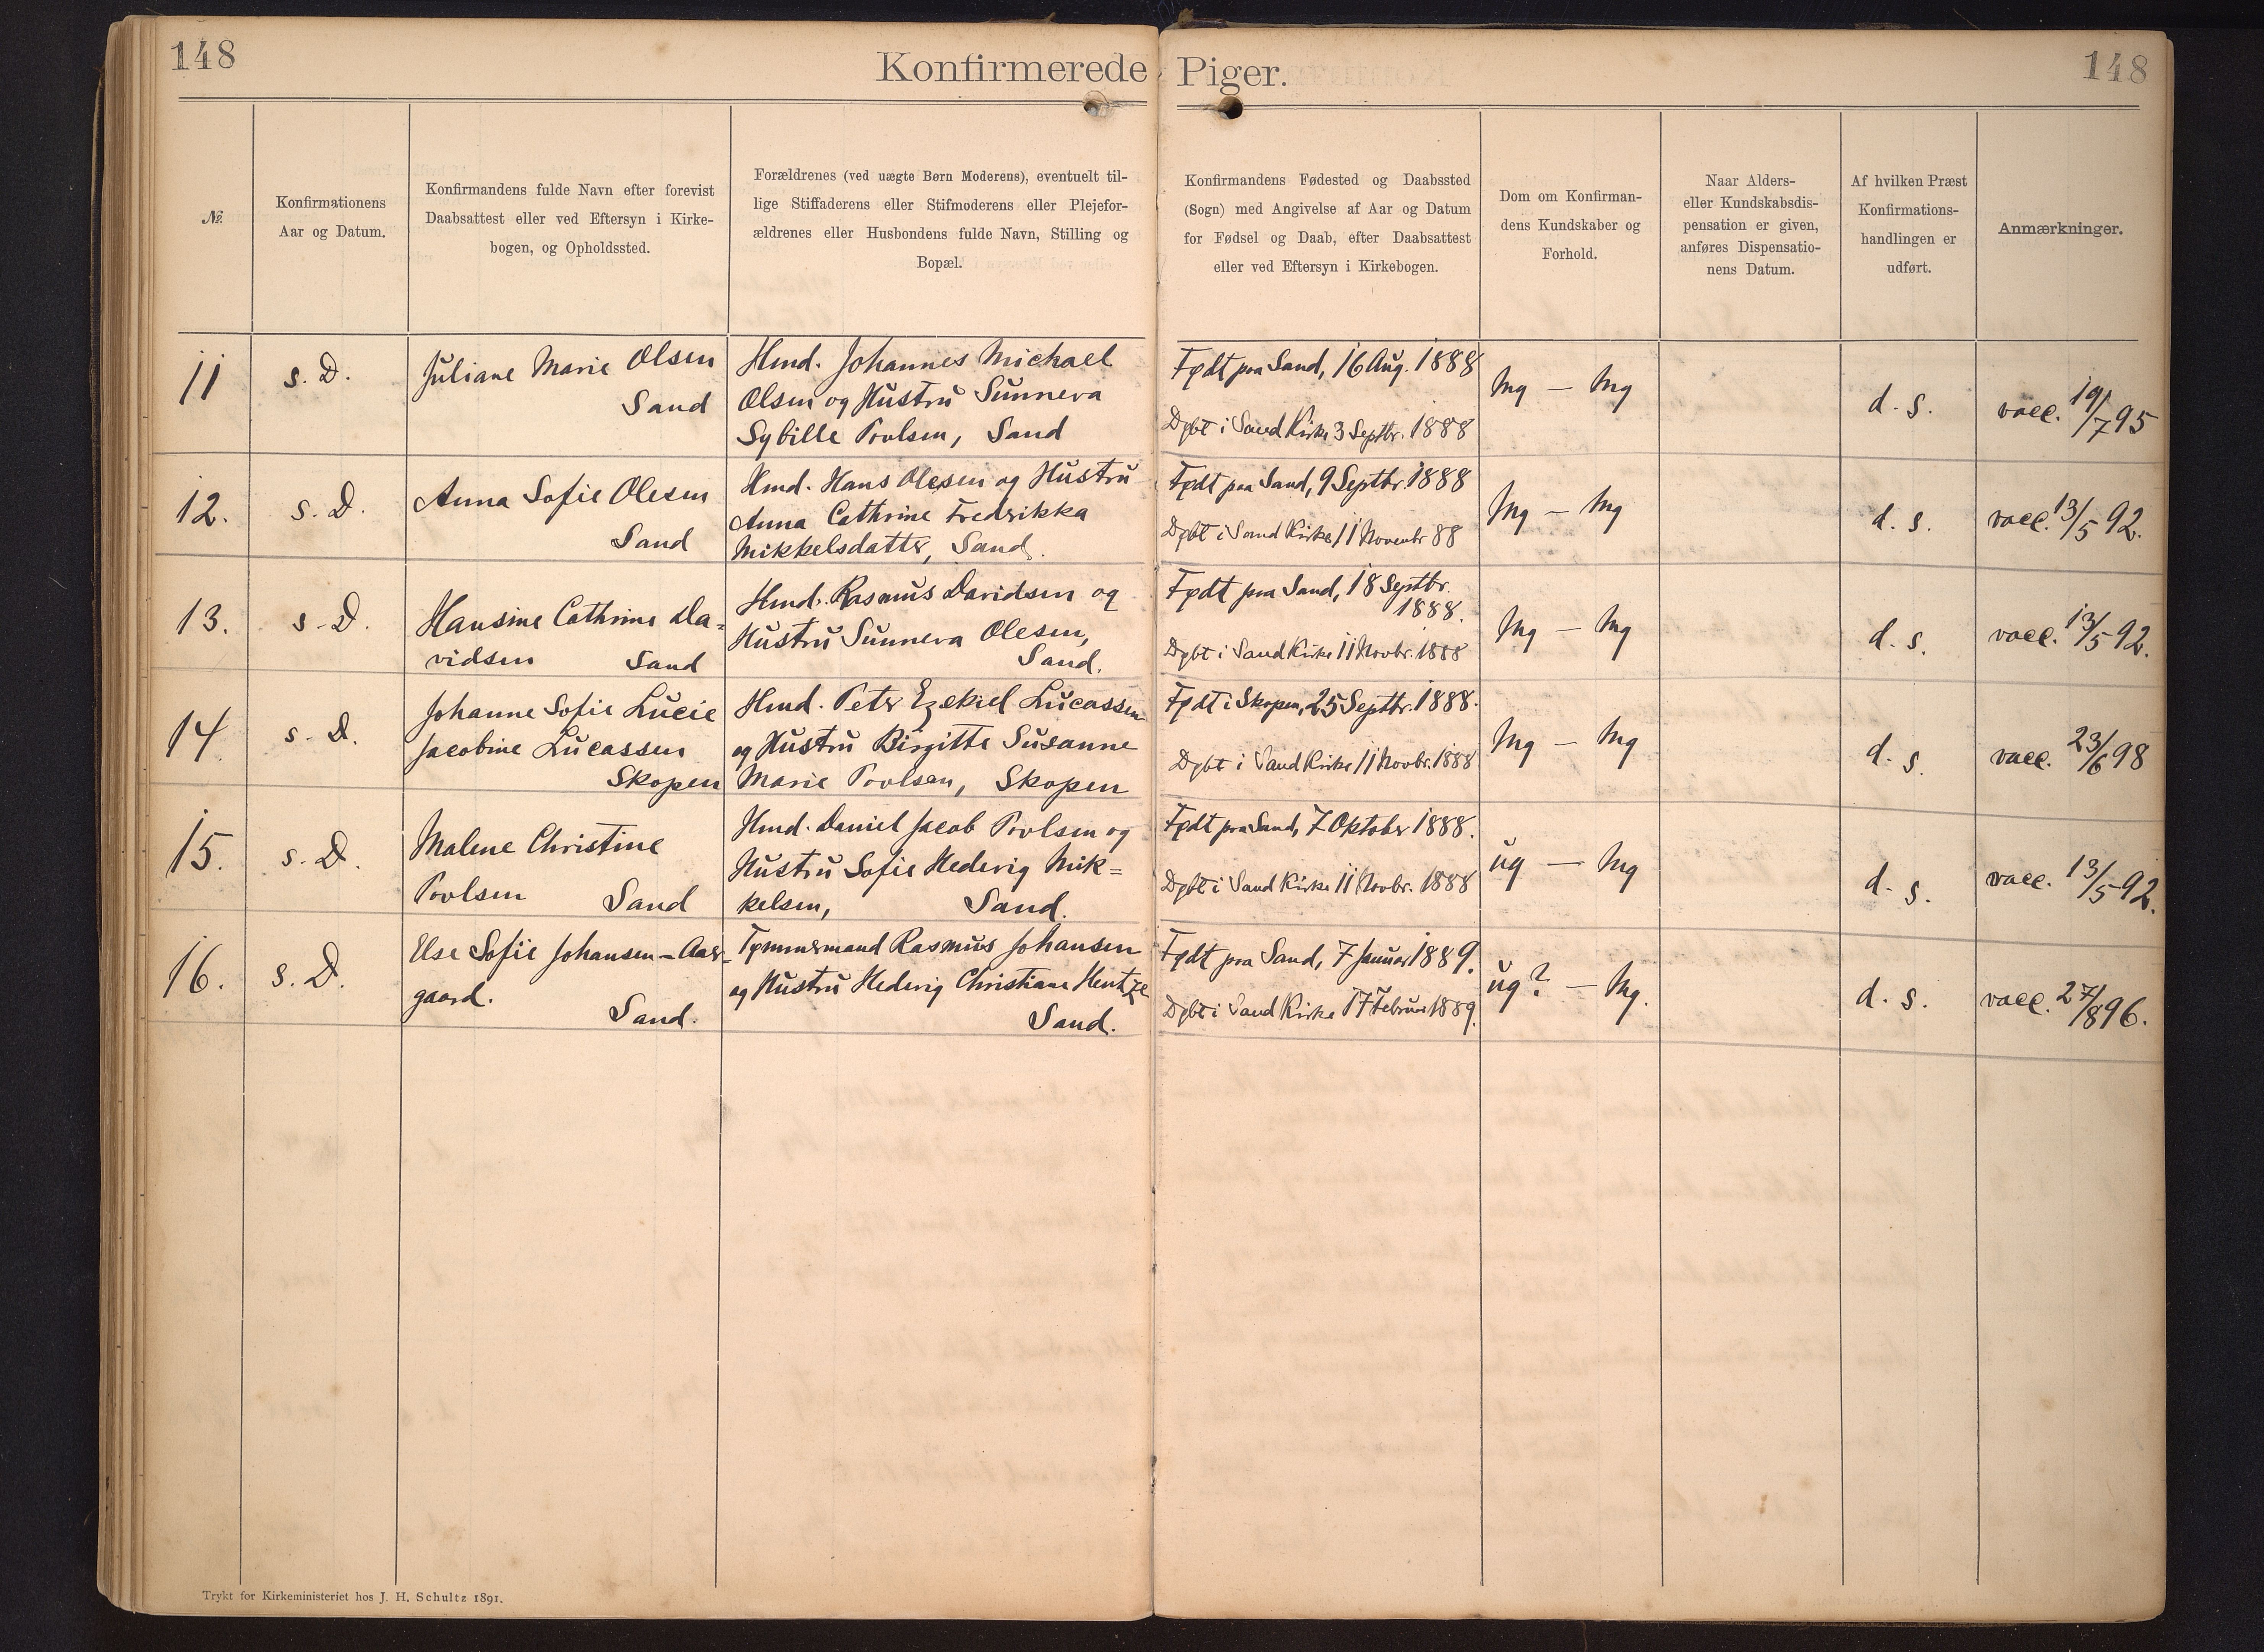 148
Konfirmerede Piger.
148
№
Konfirmationens
Aar og Datum.
Konfirmandens fulde Navn efter forevist
Daabsattest eller ved Eftersyn i Kirke-
bogen, og Opholdssted.
Forældrenes (ved uægte Børn Moderens), eventuelt til-
lige Stiffaderens eller Stifmoderens eller Plejefor-
ældrenes eller Husbondens fulde Navn, Stilling og
Bopæl.
Konfirmandens Fødested og Daabssted
(Sogn) med Angivelse af Aar og Datum
for Fødsel og Daab, efter Daabsattest
eller ved Eftersyn i Kirkebogen.
Dom om Konfirman-
dens Kundskaber og
Forhold.
Naar Alders-
eller Kundskabsdis-
pensation er given,
anføres Dispensatio-
nens Datum.
Af hvilken Præst
Konfirmations-
handlingen er
udført.
Anmærkninger.
11
s. D.
Juliane Marie Olsen
Sand
Hmd. Johannes Michael
Olsen og Hustru Sunneva
Sybille Povlsen, Sand
Født paa Sand, 16 Aug. 1888
Døbt i Sand Kirke 3 Septbr. 1888
Mg — Mg
d. s.
vacc. 19/7 95
12.
s. D.
Anna Sofie Olesen
Sand
Hmd. Hans Olesen og Hustru
Anna Cathrine Fredrikka
Mikkelsdatter, Sand.
Født paa Sand, 9 Septbr. 1888
Døbt i Sand Kirke 11 Novembr 88
Mg — Mg
d. s.
vacc. 13/5 92.
13.
s. D.
Hansine Cathrine Da=
vidsen Sand
Hmd. Rasmus Davidsen og
Hustru Sunneva Olesen,
Sand.
Født paa Sand, 18 Septbr.
1888.
Døbt i Sand Kirke 11 Novbr. 1888
Mg — Mg
d. s.
vacc. 13/5 92.
14
s. D.
Johanne Sofie Lucie
Jacobine Lucassen
Skopen
Hmd. Peter Ezekiel Lucassen
og Hustru Birgitte Susanne
Marie Povlsen, Skopen
Født i Skopen, 25 Septbr. 1888.
Døbt i Sand Kirke 11 Novbr. 1888
Mg — Mg
d. s.
vacc. 23/6 98
15.
s. D.
Malene Christine
Povlsen Sand
Hmd. Daniel Jacob Povlsen og
Hustru Sofie Hedevig Mik=
kelsen, Sand.
Født paa Sand, 7 Oktober 1888.
Døbt i Sand Kirke 11 Novbr. 1888
ug — Mg
d. s.
vacc. 13/5 92.
16.
s. D.
Else Sofie Johansen - Aar-
gaard.
Sand.
Tømmermand Rasmus Johansen
og Hustru Hedevig Christiane Hentze
Sand.
Født paa Sand, 7 Januar 1889.
Døbt i Sand Kirke 17 Februar 1889.
ug? — Mg.
d. s.
vacc. 27/8 96.
Trykt for Kirkeministeriet hos J. H. Schultz 1891.